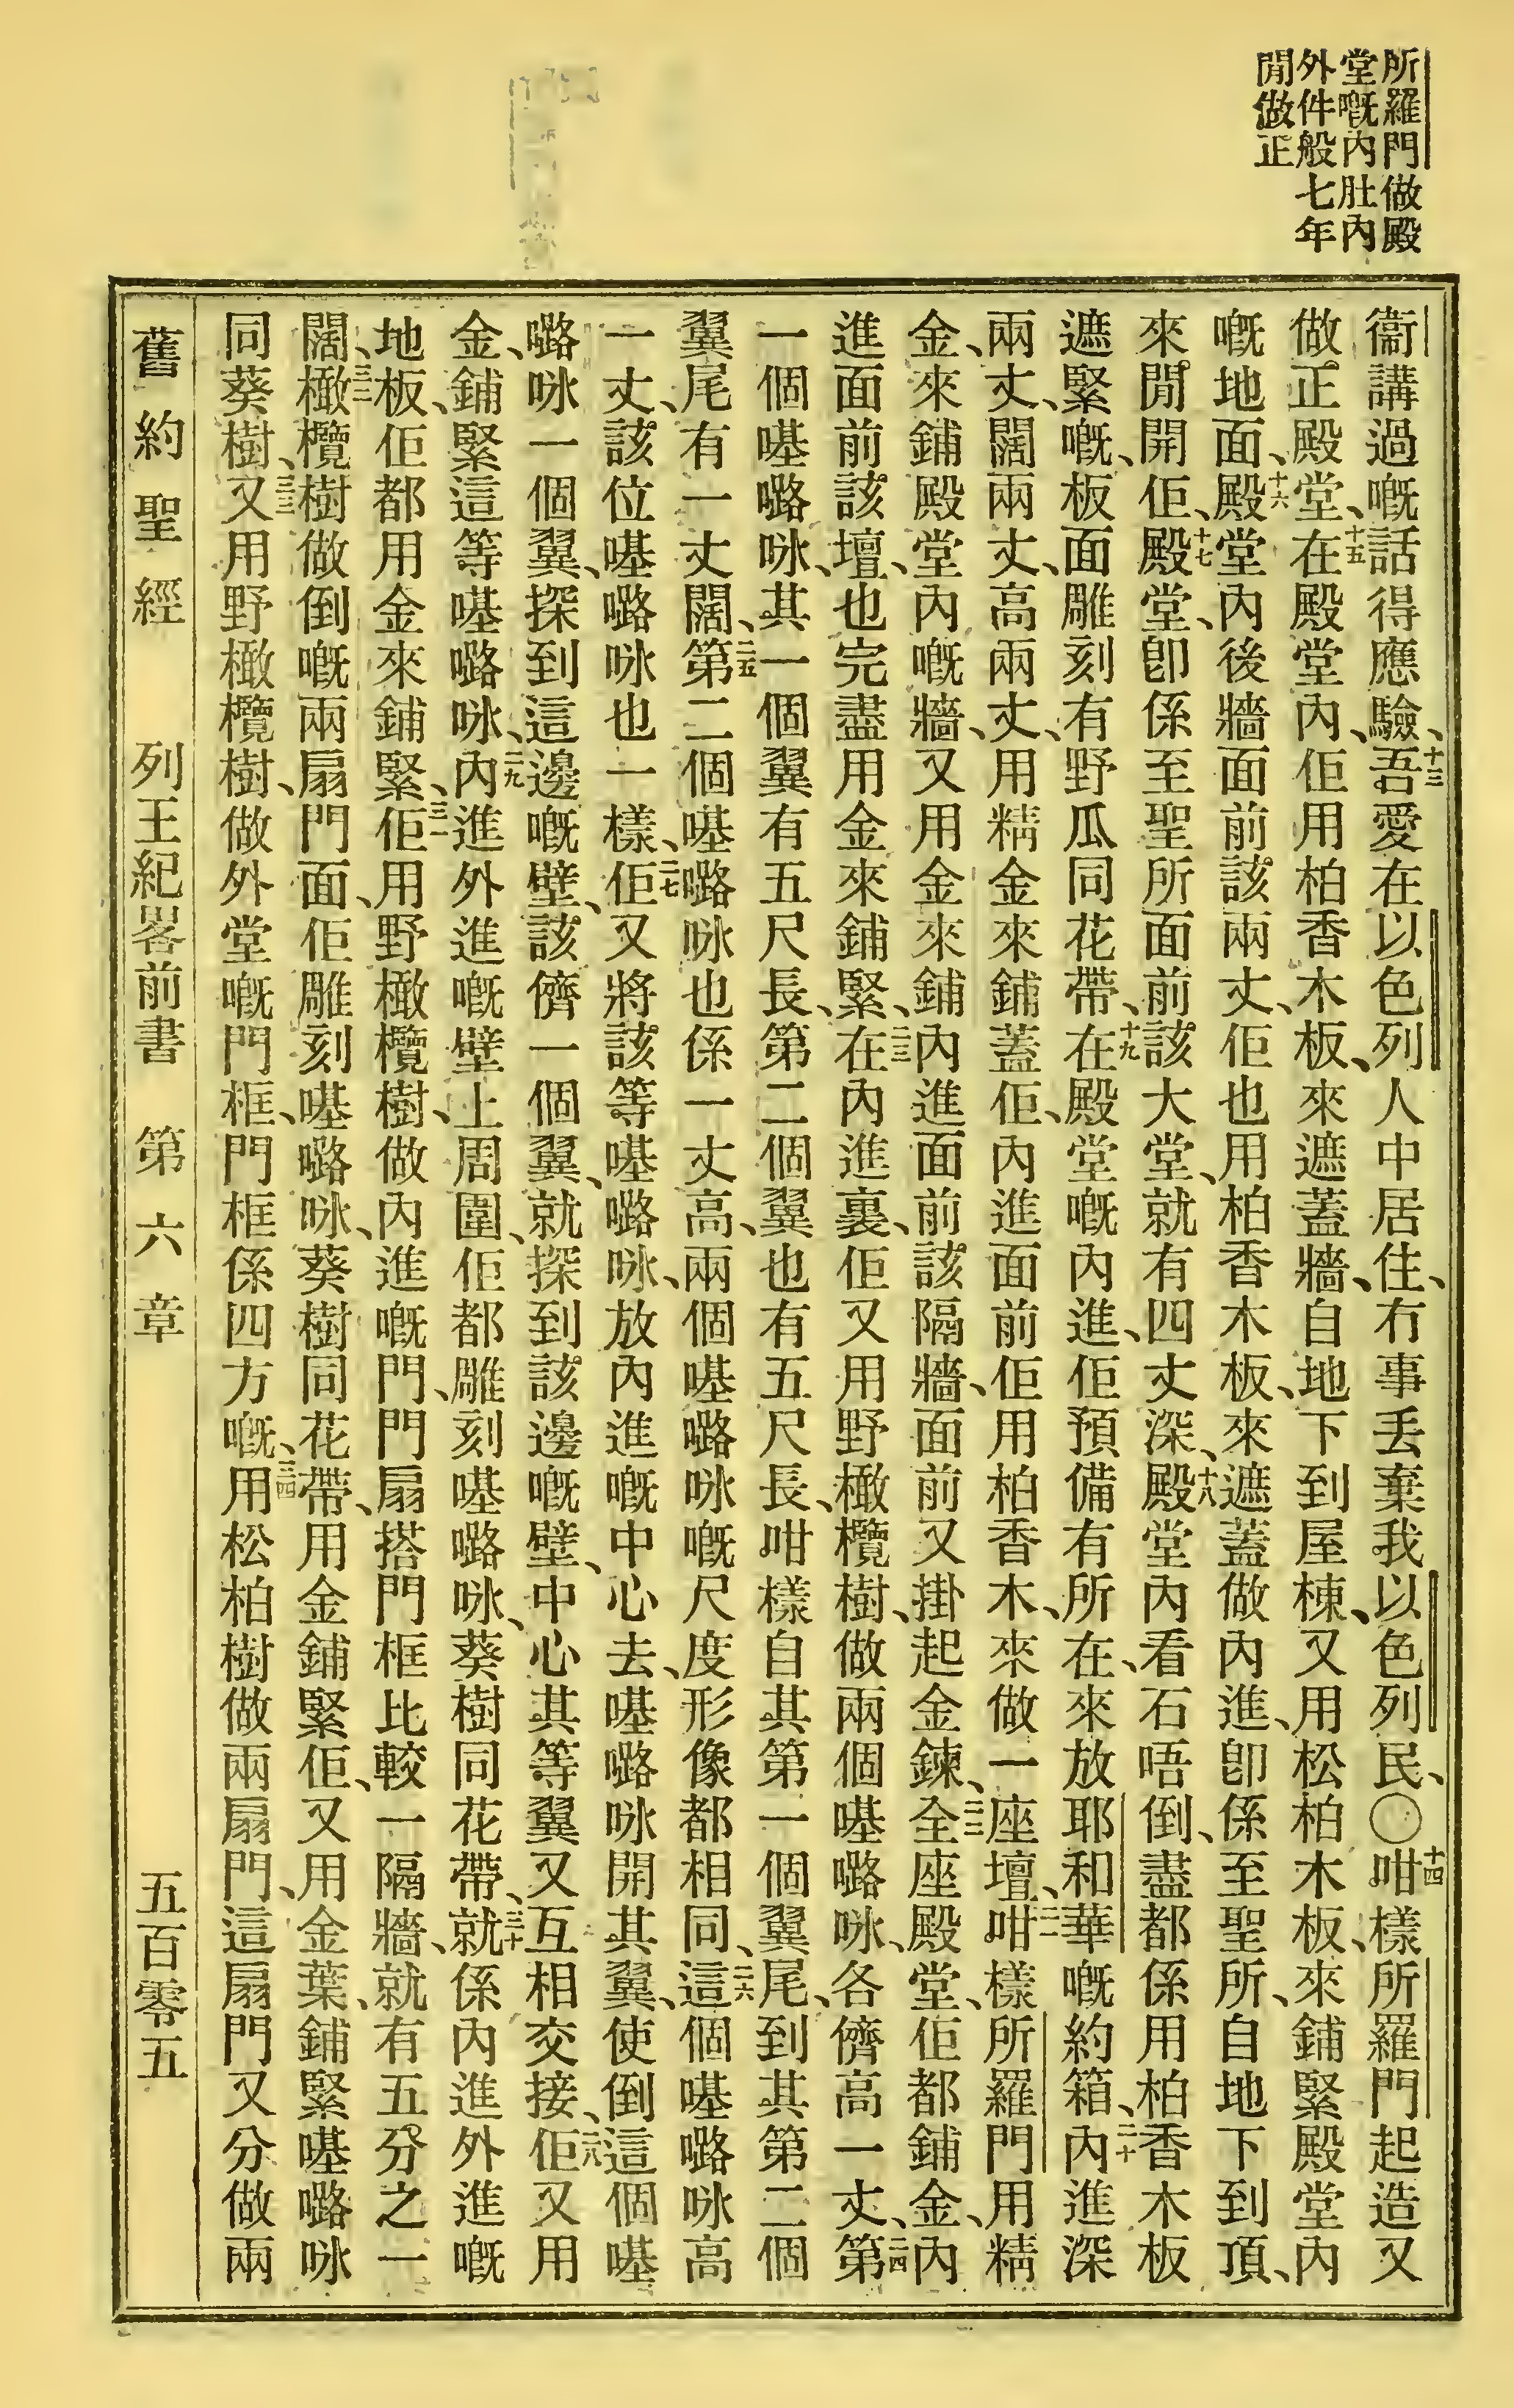 所羅門做殿
堂嘅內肚內
外件般七年
閒做正
衞講過嘅話得應驗、十三吾愛在以色列人中居住、冇事丢棄我以色列民、〇十四咁樣所羅門起造又
做正殿堂、十五在殿堂內、佢用柏香木板、來遮蓋牆、自地下到屋棟、又用松柏木板、來鋪緊殿堂內
嘅地面、十六殿堂內後牆面前該兩丈、佢也用柏香木板、來遮蓋做內進、卽係至聖所、自地下到頂、
來閒開佢、十七殿堂、卽係至聖所面前該大堂、就有四丈深、十八殿堂內看石唔倒、盡都係用柏香木板
遮緊嘅、板面雕刻有野瓜同花帶、十九在殿堂嘅內進、佢預備有所在、來放耶和華嘅約箱、二十內進深
兩丈、闊兩丈、高兩丈、用精金來鋪蓋佢、內進面前佢用柏香木、來做一座壇、二一咁樣所羅門用精
金、來鋪殿堂內嘅牆、又用金來鋪內進面前該隔牆、面前又掛起金鍊、二二全座殿堂、佢都鋪金、內
進面前該壇、也完盡用金來鋪緊、二三在內進裏、佢又用野橄欖樹、做兩個𠾀嚕咏、各儕高一丈、二四第
一個𠾀嚕咏、其一個翼有五尺長、第二個翼也有五尺長、咁樣自其第一個翼尾、到其第二個
翼尾有一丈闊、二五第二個𠾀嚕咏也係一丈高、兩個𠾀嚕咏嘅尺度形像都相同、二六這個𠾀嚕咏高
一丈、該位𠾀嚕咏也一樣、二七佢又將該等𠾀嚕咏、放內進嘅中心去、𠾀嚕咏開其翼、使倒這個𠾀
嚕咏一個翼、探到這邊嘅壁、該儕一個翼、就探到該邊嘅壁、中心其等翼又互相交接、二八佢又用
金、鋪緊這等𠾀嚕咏、二九內進外進嘅壁上周圍、佢都雕刻𠾀嚕咏、葵樹同花帶、三十就係內進外進嘅
地板、佢都用金來鋪緊、三一佢用野橄欖樹、做內進嘅門、門扇搭門框比較一隔牆、就有五分之一
闊、三二橄欖樹做倒嘅兩扇門面、佢雕刻𠾀嚕咏、葵樹同花帶、用金鋪緊佢、又用金葉、鋪緊𠾀嚕咏
同葵樹、三三又用野橄欖樹、做外堂嘅門框、門框係四方嘅、三四用松柏樹做兩扇門、這扇門又分做兩
舊約聖經　列王紀畧前書　第六章　五百零五